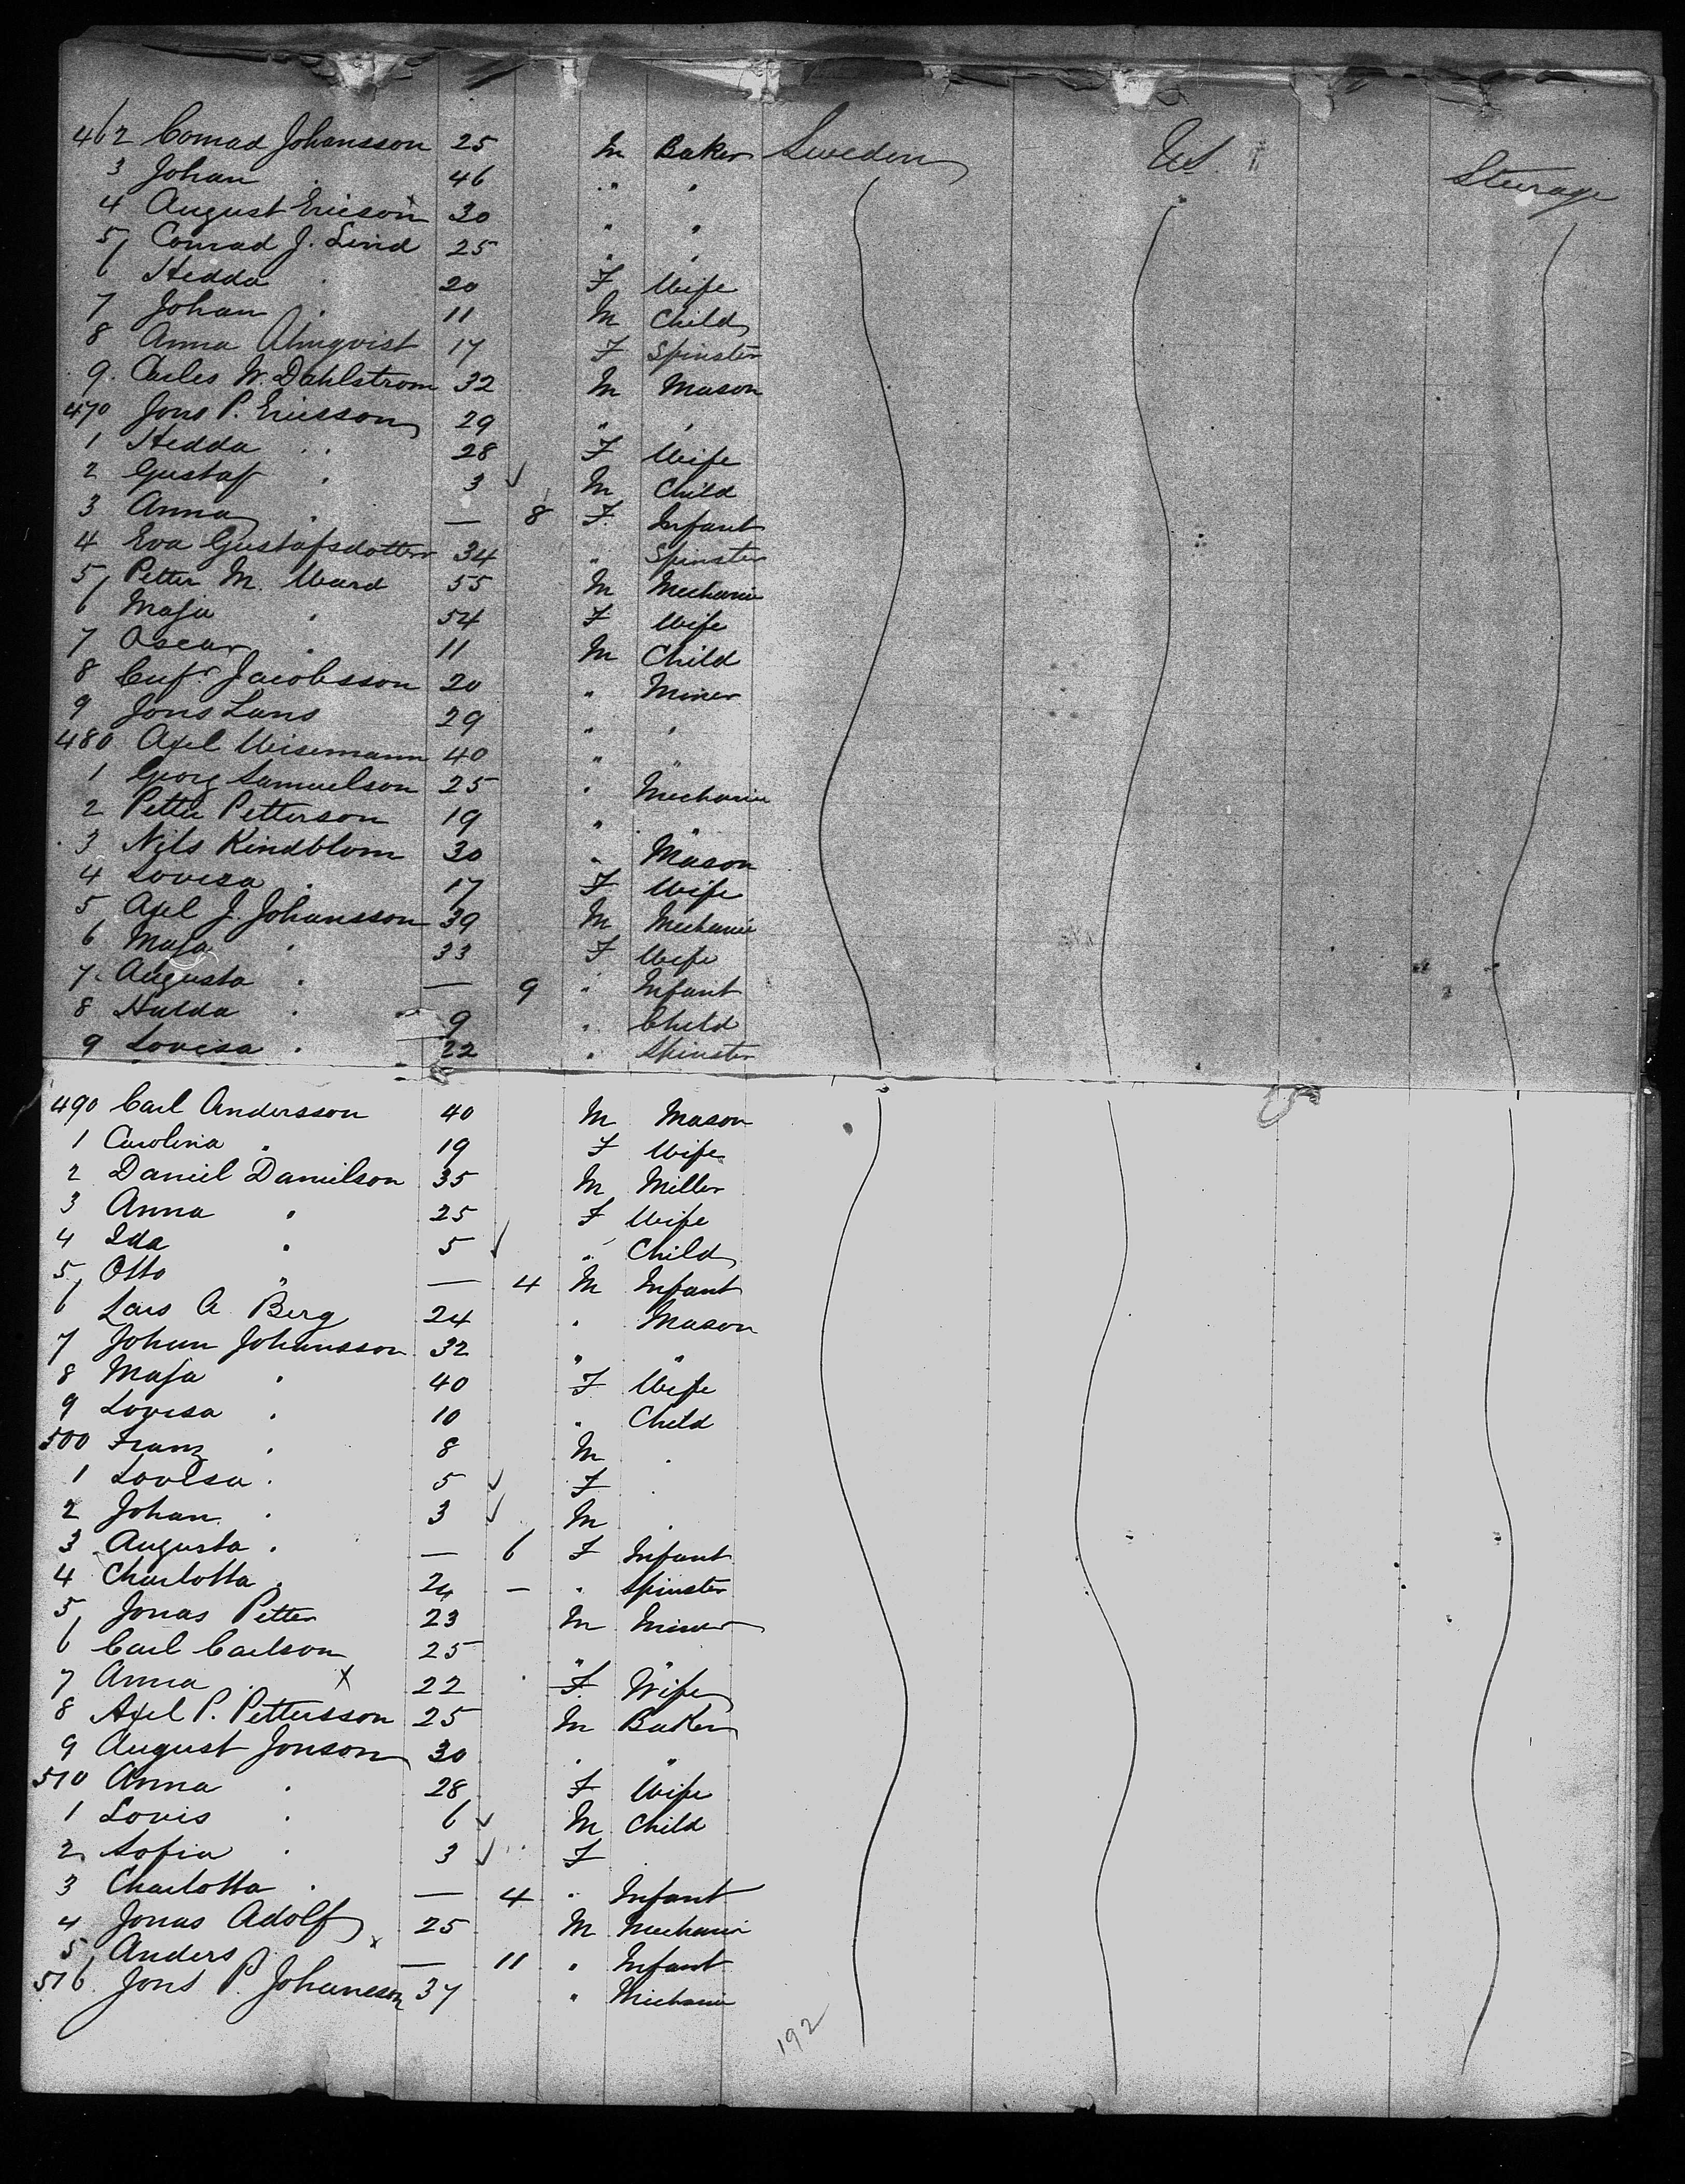 462 Conrad Johansson 25 M Baker Sweden US. Steerage
3 Johan . 46 " "
4 August Ericson 30 " "
5 Conrad J. Lind 25 " "
6 Hedda . 20 F Wife
7 Johan . 11 M Child
8 Anna Almqvist 17 F Spinster
9. Carles W. Dahlstrom 32 M Mason
470 Jons P. Ericsson 29 " "
1 Hedda " 28 F Wife
2 Gustaf " 3 ✓ M Child
3 Anna " — 8 F Infant
4 Eva Gustafsdotter 34 " Spinster
5 Petter M. Ward 55 M Mechanic
6 Maja " 54 F Wife
7 Oscar " 11 M Child
8 Jacobsson 20 " Miner
9 Jons Lans 29 " "
480 Axel Wisemann 40 " "
1 Georg Samuelson 25 " Mechanic
2 Petter Petterson 19 " "
3 Nils Kindblom 30 " Mason
4 Lovisa . 17 F Wife
5 Axel J. Johansson 39 M Mechanic
6 Maja " 33 F Wife
7 Augusta " — 9 " Infant
8 Hulda " 9 " Child
9 Lovisa " 22 " Spinster
490 Carl Andersson 40 M Mason
1 Carolina " 19 F Wife
2 Daniel Danielson 35 M Miller
3 Anna " 25 F Wife
4 Ida " 5 ✓ " Child
5 Otto " — 4 M Infant
6 Lars A. Berg 24 " Mason
7 Johan Johansson 32 " "
8 Maja " 40 F Wife
9 Lovisa " 10 " Child
500 Franz " 8 M "
1 Lovisa " 5 ✓ F "
2 Johan " 3 ✓ M "
3 Augusta " — 6 F Infant
4 Charlotta " 24 — " Spinster
5 Jonas Petter 23 M Miner
6 Carl Carlson 25 " "
7 Anna " X 22 F. Wife
8 Axel P. Pettersson 25 M Baker
9 August Jonson 30 " "
510 Anna " 28 F Wife
1 Lovis " 6 ✓ M Child
2 Sofia " 3 ✓ F "
3 Charlotta " — 4 " Infant
4 Jonas Adolf 25 M Mechanic
5 Anders " x — 11 " Infant
516 Jons P. Johaneson 37 " Mechanic
192